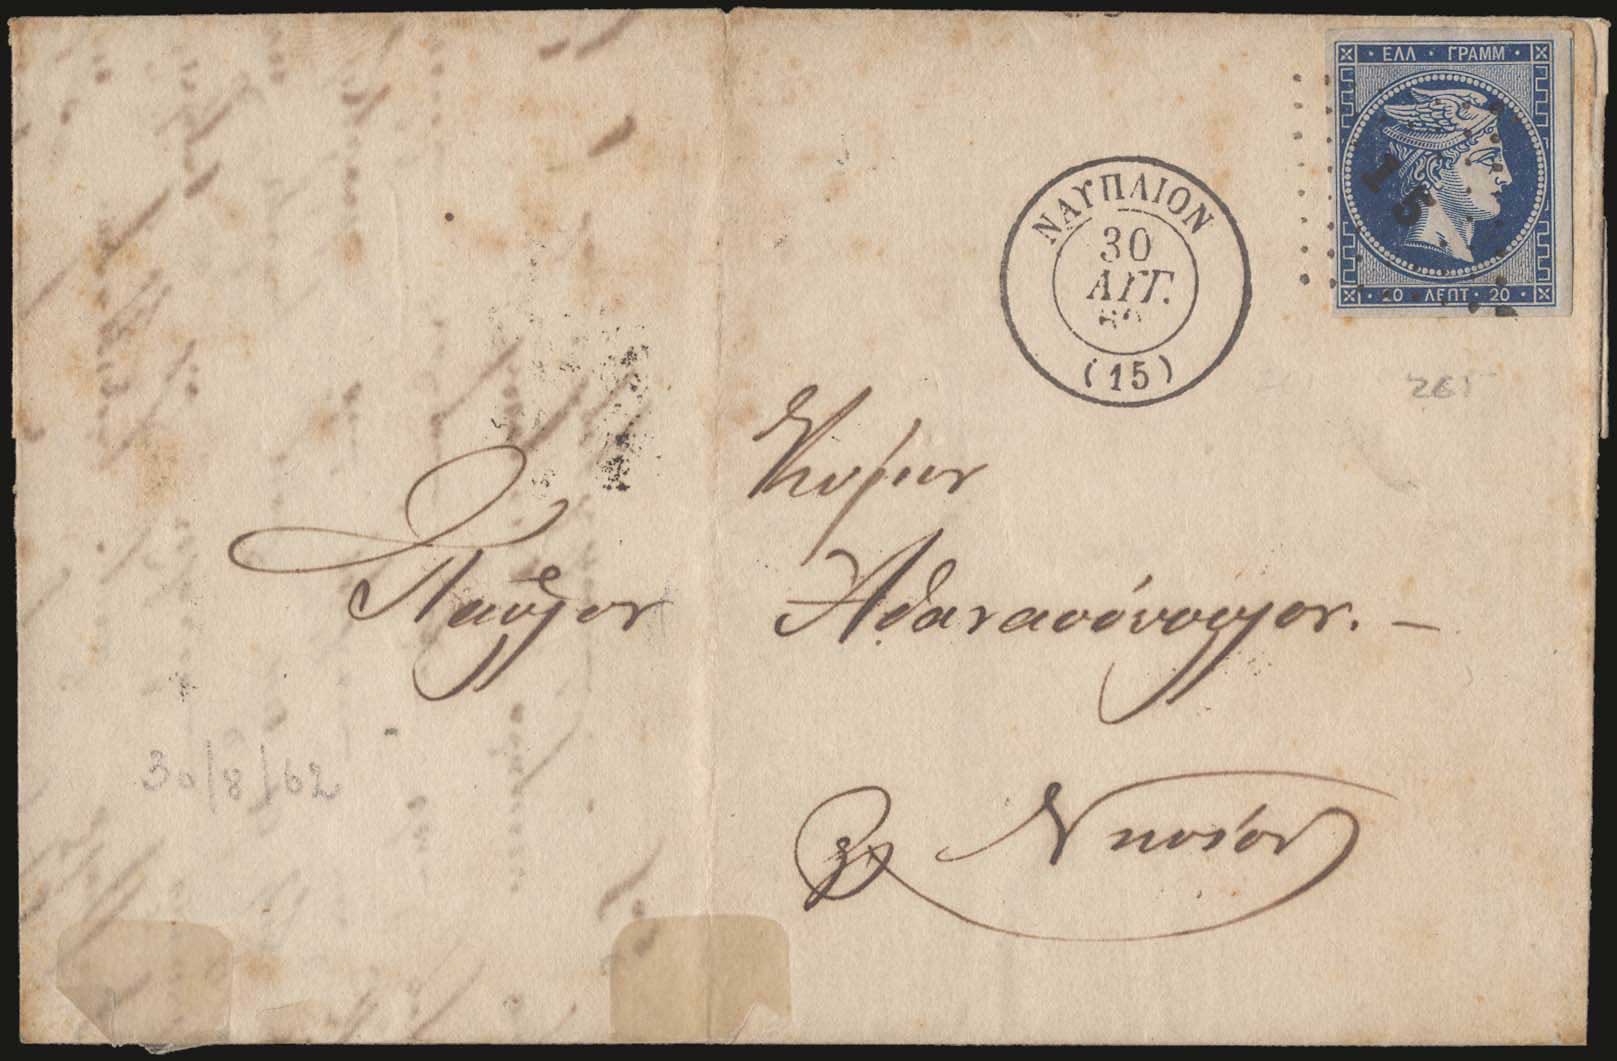 ΕΛΛ · ΓΡΑΜΜ
15
20 · ΛΕΠΤ · 20
ΝΑΥΠΛΙΟΝ
30
ΑΥΓ.
62
(15)
265
Κύριον
Παῦλον Ἀθανασόπουλον. —
30/8/62
εἰς Νησίον